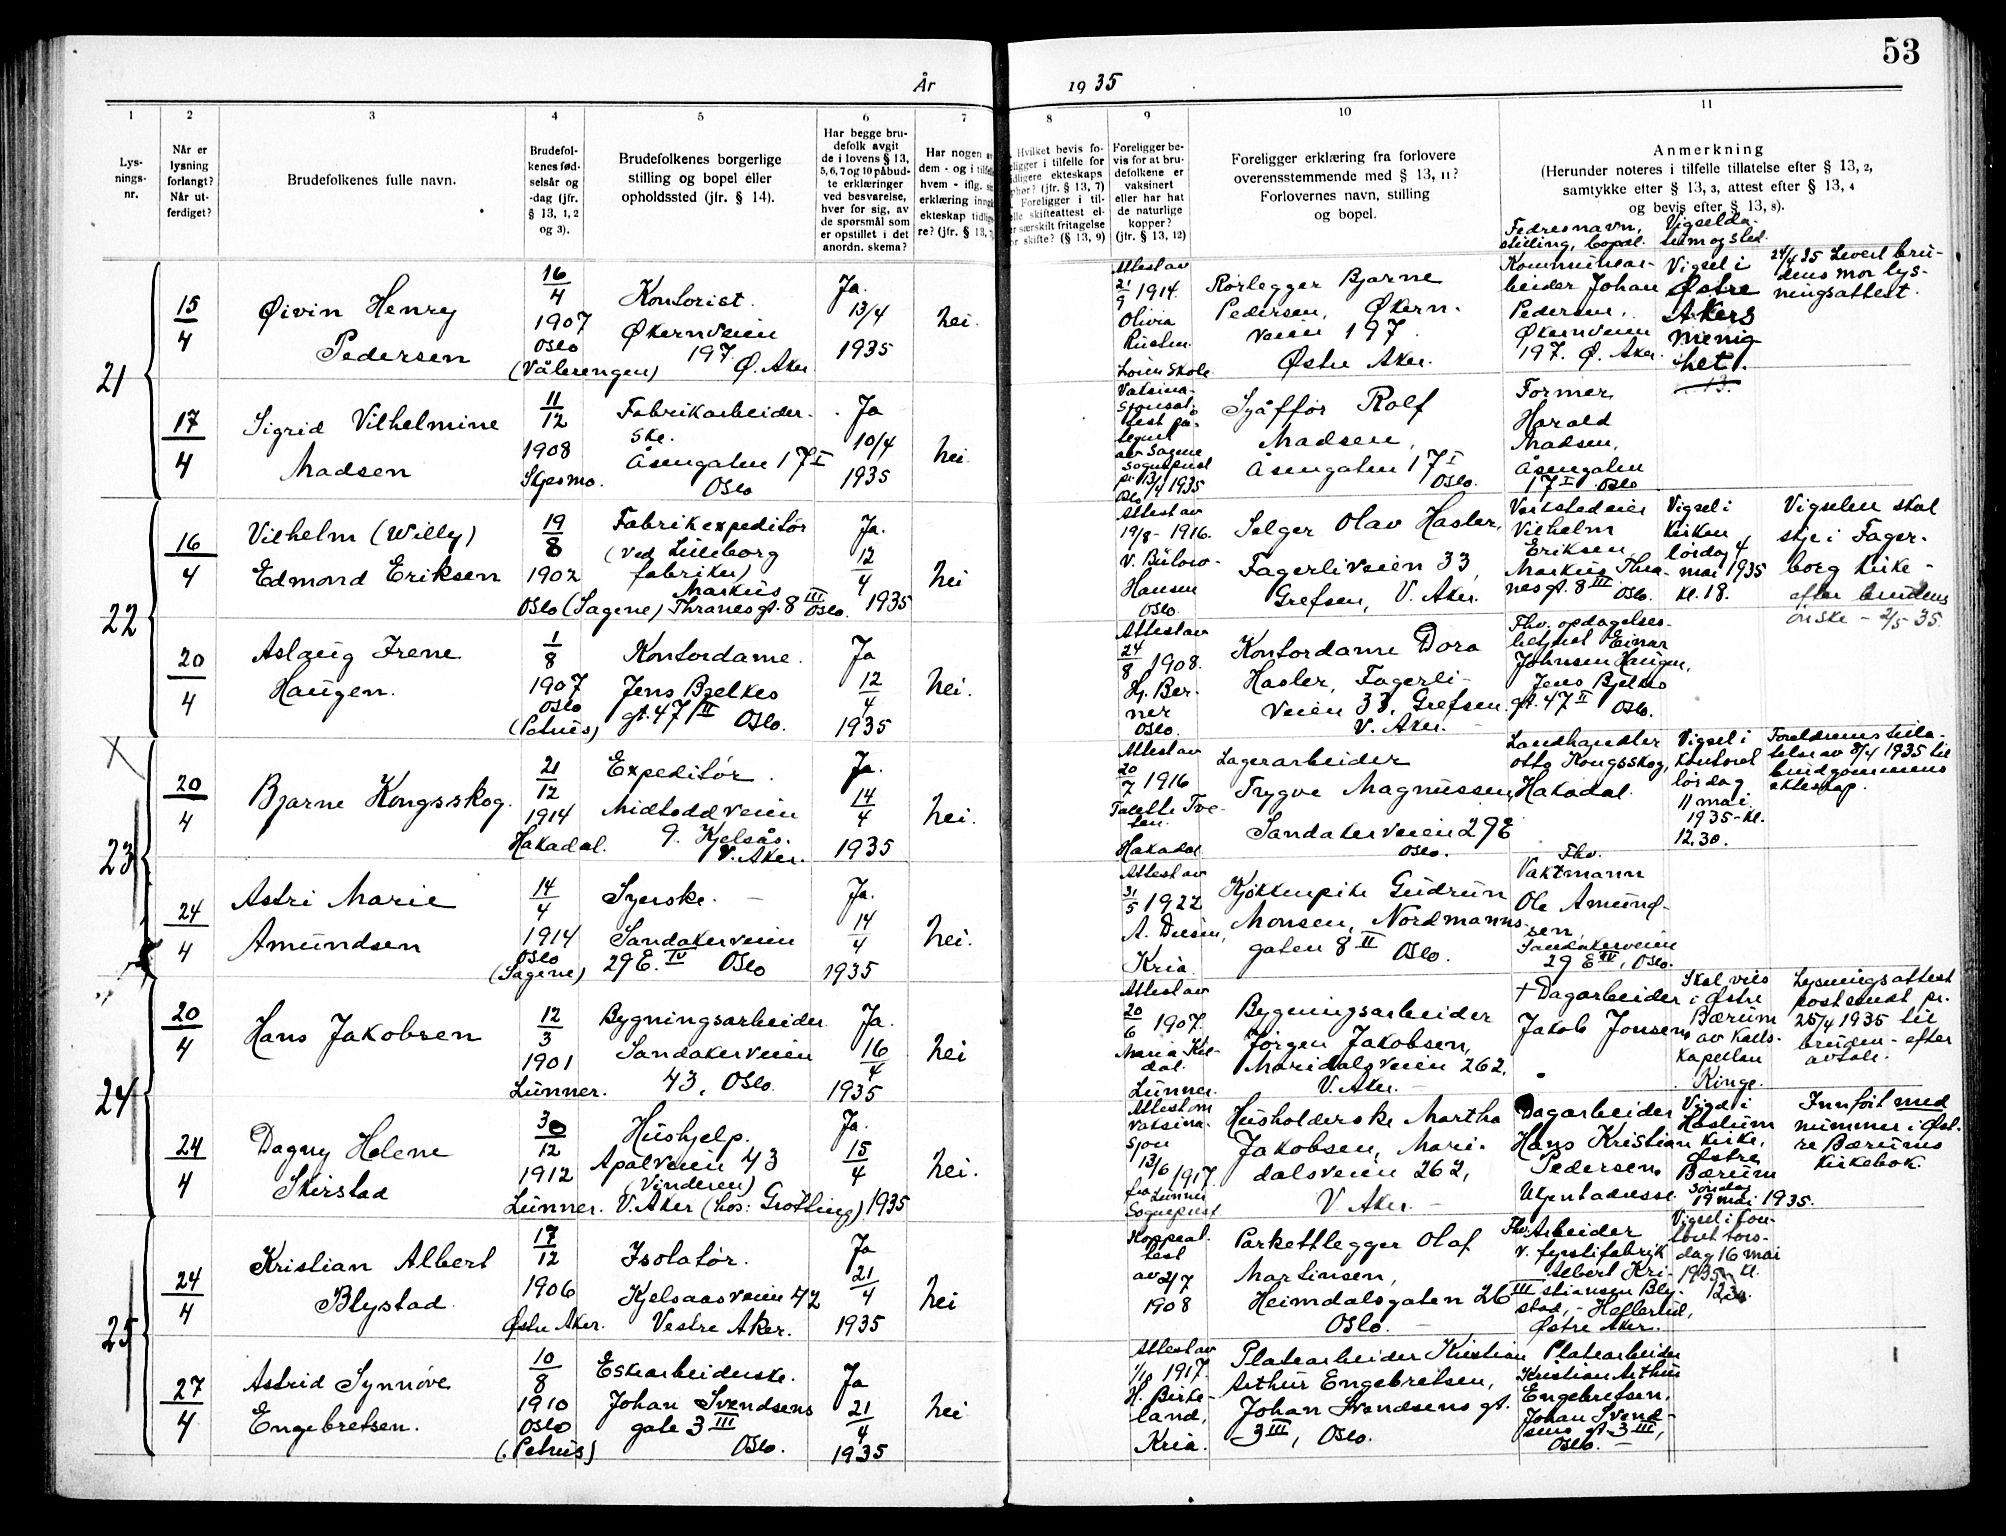 53
År 1935
1
2
3
4
5
6
7
8
9
10
11
Lys-
nings-
nr.
Når er
lysning
forlangt?
Når ut-
ferdiget?
Brudefolkenes fulle navn.
Brudefol-
kenes fød-
selsår og
-dag (jfr.
§ 13, 1, 2
og 3).
Brudefolkenes borgerlige
stilling og bopel eller
opholdssted (jfr. § 14).
Har begge bru-
defolk avgit
de i lovens § 13,
5, 6, 7 og 10 påbud-
te erklæringer
ved besvarelse,
hver for sig, av
de spørsmål som
er opstillet i det
anordn. skema?
Har nogen
dem - og i
hvem - iflg.
erklæring
ekteskap
re? (jfr. § 13,
Hvilket bevis fo-
ligger i tilfelle for
ekteskaps
(jfr. § 13, 7)
Foreligger i til-
skifteattest el-
særskilt fritagelse
skifte? (§ 13, 9)
Foreligger be-
vis for at bru-
defolkene er
vaksinert
eller har hat
de naturlige
kopper?
(jfr. § 13, 12)
Foreligger erklæring fra forlovere
overensstemmende med § 13, 11?
Forlovernes navn, stilling
og bopel.
Anmerkning
(Herunder noteres i tilfelle tillatelse efter § 13, 2,
samtykke efter § 13, 3, attest efter § 13, 4
og bevis efter § 13, 8).
Fedres navn,
stilling, bopel.
Vigselda-
tum og sted.
21
15/4
Øivin Henry
Pedersen
16/4
1907
Oslo
(Vålerengen)
Kontorist.
Økernveien
197 Ø. Aker
Ja.
13/4
1935
nei.
Attest av
21/9 1914.
Olivia
Lørenskole
Rørlegger Bjarne
Pedersen, Økern-
veien 197
Østre Aker.
Kommunear-
beider Johan
Pedersen,
Økernveien
197. Ø. Aker.
Vigsel i
Østre
Akers
menig
het.
24/4 35 Levert bru-
dens mor lys-
ningsattest.
17/4
Sigrid Vilhelmine
Madsen
11/12
1908
Fabrikarbeider-
ske.
Åsengaten 17 I
Oslo
Ja
10/4
1935
nei.
Vaksina-
sjonsat-
test på-
tegnet
av Sagene
Sogneprest
pr. 13/4 1935
Oslo
Sjåffør Rolf
Madsen,
Åsengaten 17 I
Oslo.
Former
Harald
Madsen,
Åsengaten
17 I Oslo
22
16/4
Vilhelm (Willy)
Edmond Eriksen
19/8
1902
Oslo (Sagene)
Fabrikexpeditør
(ved Lilleborg
fabriker)
Markus
Thranesgt. 8 III Oslo.
Ja.
12/4
1935
nei
Attest av
19/8 - 1916.
v. Bülow-
Hansen
Oslo.
Selger Olav Hasler,
Fagerliveien 33,
Grefsen, V. Aker.
Verkstedeier
Vilhelm
Eriksen
Markus Thra-
nesgt. 8 III Oslo.
Vigsel i
Kirken
lørdag 4
mai 1935
kl. 18.
Vigselen skal
skje i Fager-
borg kirke -
efter brudens
ønske - 2/5 35.
20/4
Aslaug Irene
Haugen.
1/8
1907
Oslo
(Petrus)
Kontordame.
Jens Bjelkes
gt. 47 II Oslo.
Ja
12/4
1935
nei.
Attest av
24/8 1908.
Hj. Ber-
ner
Oslo.
Kontordame Dora
Hasler, Fagerli-
veien 33, Grefsen.
V. Aker.
Fhv. opdagelses-
betjent Einar
Johnsen Haugen,
Jens Bjelkes
gt. 47 II Oslo.
23
20/4
Bjarne Kongsskog.
21/12
1914
Hakadal.
Expeditør.
Midtoddveien
9. Kjelsås.
V. Aker.
Ja.
14/4
1935
nei.
Attest av
20/7 1916
Hakadal
Lagerarbeider
Trygve Magnussen,
Sandakerveien 29 E
Oslo.
Landhandler
Otto Kongsskog,
Hakadal.
Vigsel i
Kontoret
lørdag
11 mai
1935 - kl.
12.30.
Foreldrenes tilla-
telse av 8/4 1935 til
brudgommens
ekteskap.
24/4
Astri Marie
Amundsen
14/4
1914
Oslo
(Sagene)
Syerske.
Sandakerveien
29 E. IV Oslo
Ja.
14/4
1935
nei.
Attest av
31/5 1922
Kria
Kjøkkenpike Gudrun
Monsen, Nordmanns-
gaten 8 II Oslo.
Fhv.
Vaktmann
Ole Amund-
sen,
Sandakerveien
29 E IV, Oslo.
24
20/4
Hans Jakobsen
12/3
1901
Lunner.
Bygningsarbeider.
Sandakerveien
43, Oslo.
Ja.
16/4
1935
nei
Attest av
20/6 1907.
Lunner.
Bygningsarbeider
Jørgen Jakobsen,
Maridalsveien 262,
V. Aker.
† Dagarbeider
Jakob Jonsen
Skal vies
i Østre
Bærum
av Kalls-
kapellan
Ringe.
Lysningsattest
postsendt pr.
25/4 1935 til
bruden - efter
avtale.
24/4
Dagny Helene
Skirstad
30/12
1912
Lunner.
Hushjelp.
Apalveien 43
(Vinderen)
V. Aker (hos: Grøtting)
Ja.
15/4
1935
nei.
Attest om
vaksina-
sjon
13/6 1917.
fra Lunner
Sogneprest
Husholderske Martha
Jakobsen, Mari-
dalsveien 262,
V. Aker.
Dagarbeider
Hans Kristian
Pedersen,
Ukjent adresse.
Vigd i
Haslum
kirke,
Østre
Bærum
søndag
19 mai 1935.
Innført med
nummer i Øst-
re Bærums
kirkebok.
25
24/4
Kristian Albert
Blystad
17/12
1906
Østre Aker.
Isolatør.
Kjelsaasveien 42
Vestre Aker.
Ja
21/4
1935
nei
Koppeat-
test
av 2/7
1908
Parkettlegger Olaf
Martinsen,
Heimdalsgaten 26 III
Oslo.
Fhv. Arbeider
v. fyrstifabrik
Albert Kri-
stiansen Bly-
stad, - Hellerud,
Østre Aker.
Vigsel i kon-
toret tors-
dag 16 mai
1935 kl.
27/4
Astrid Synnøve
Engebretsen.
10/8
1910
Oslo
(Petrus)
Eskearbeiderske.
Johan Svendsens
gate 3 III
Oslo.
Ja
21/4
1935
nei
Attest av
1917.
H. Birke-
land,
Kria.
Platearbeider Kristian
Arthur Engebretsen,
Johan Svendsens gt.
3 III, Oslo.
Platearbeider
Kristian Arthur
Engebretsen,
Johan Svend-
sens gt. 3 III,
Oslo.